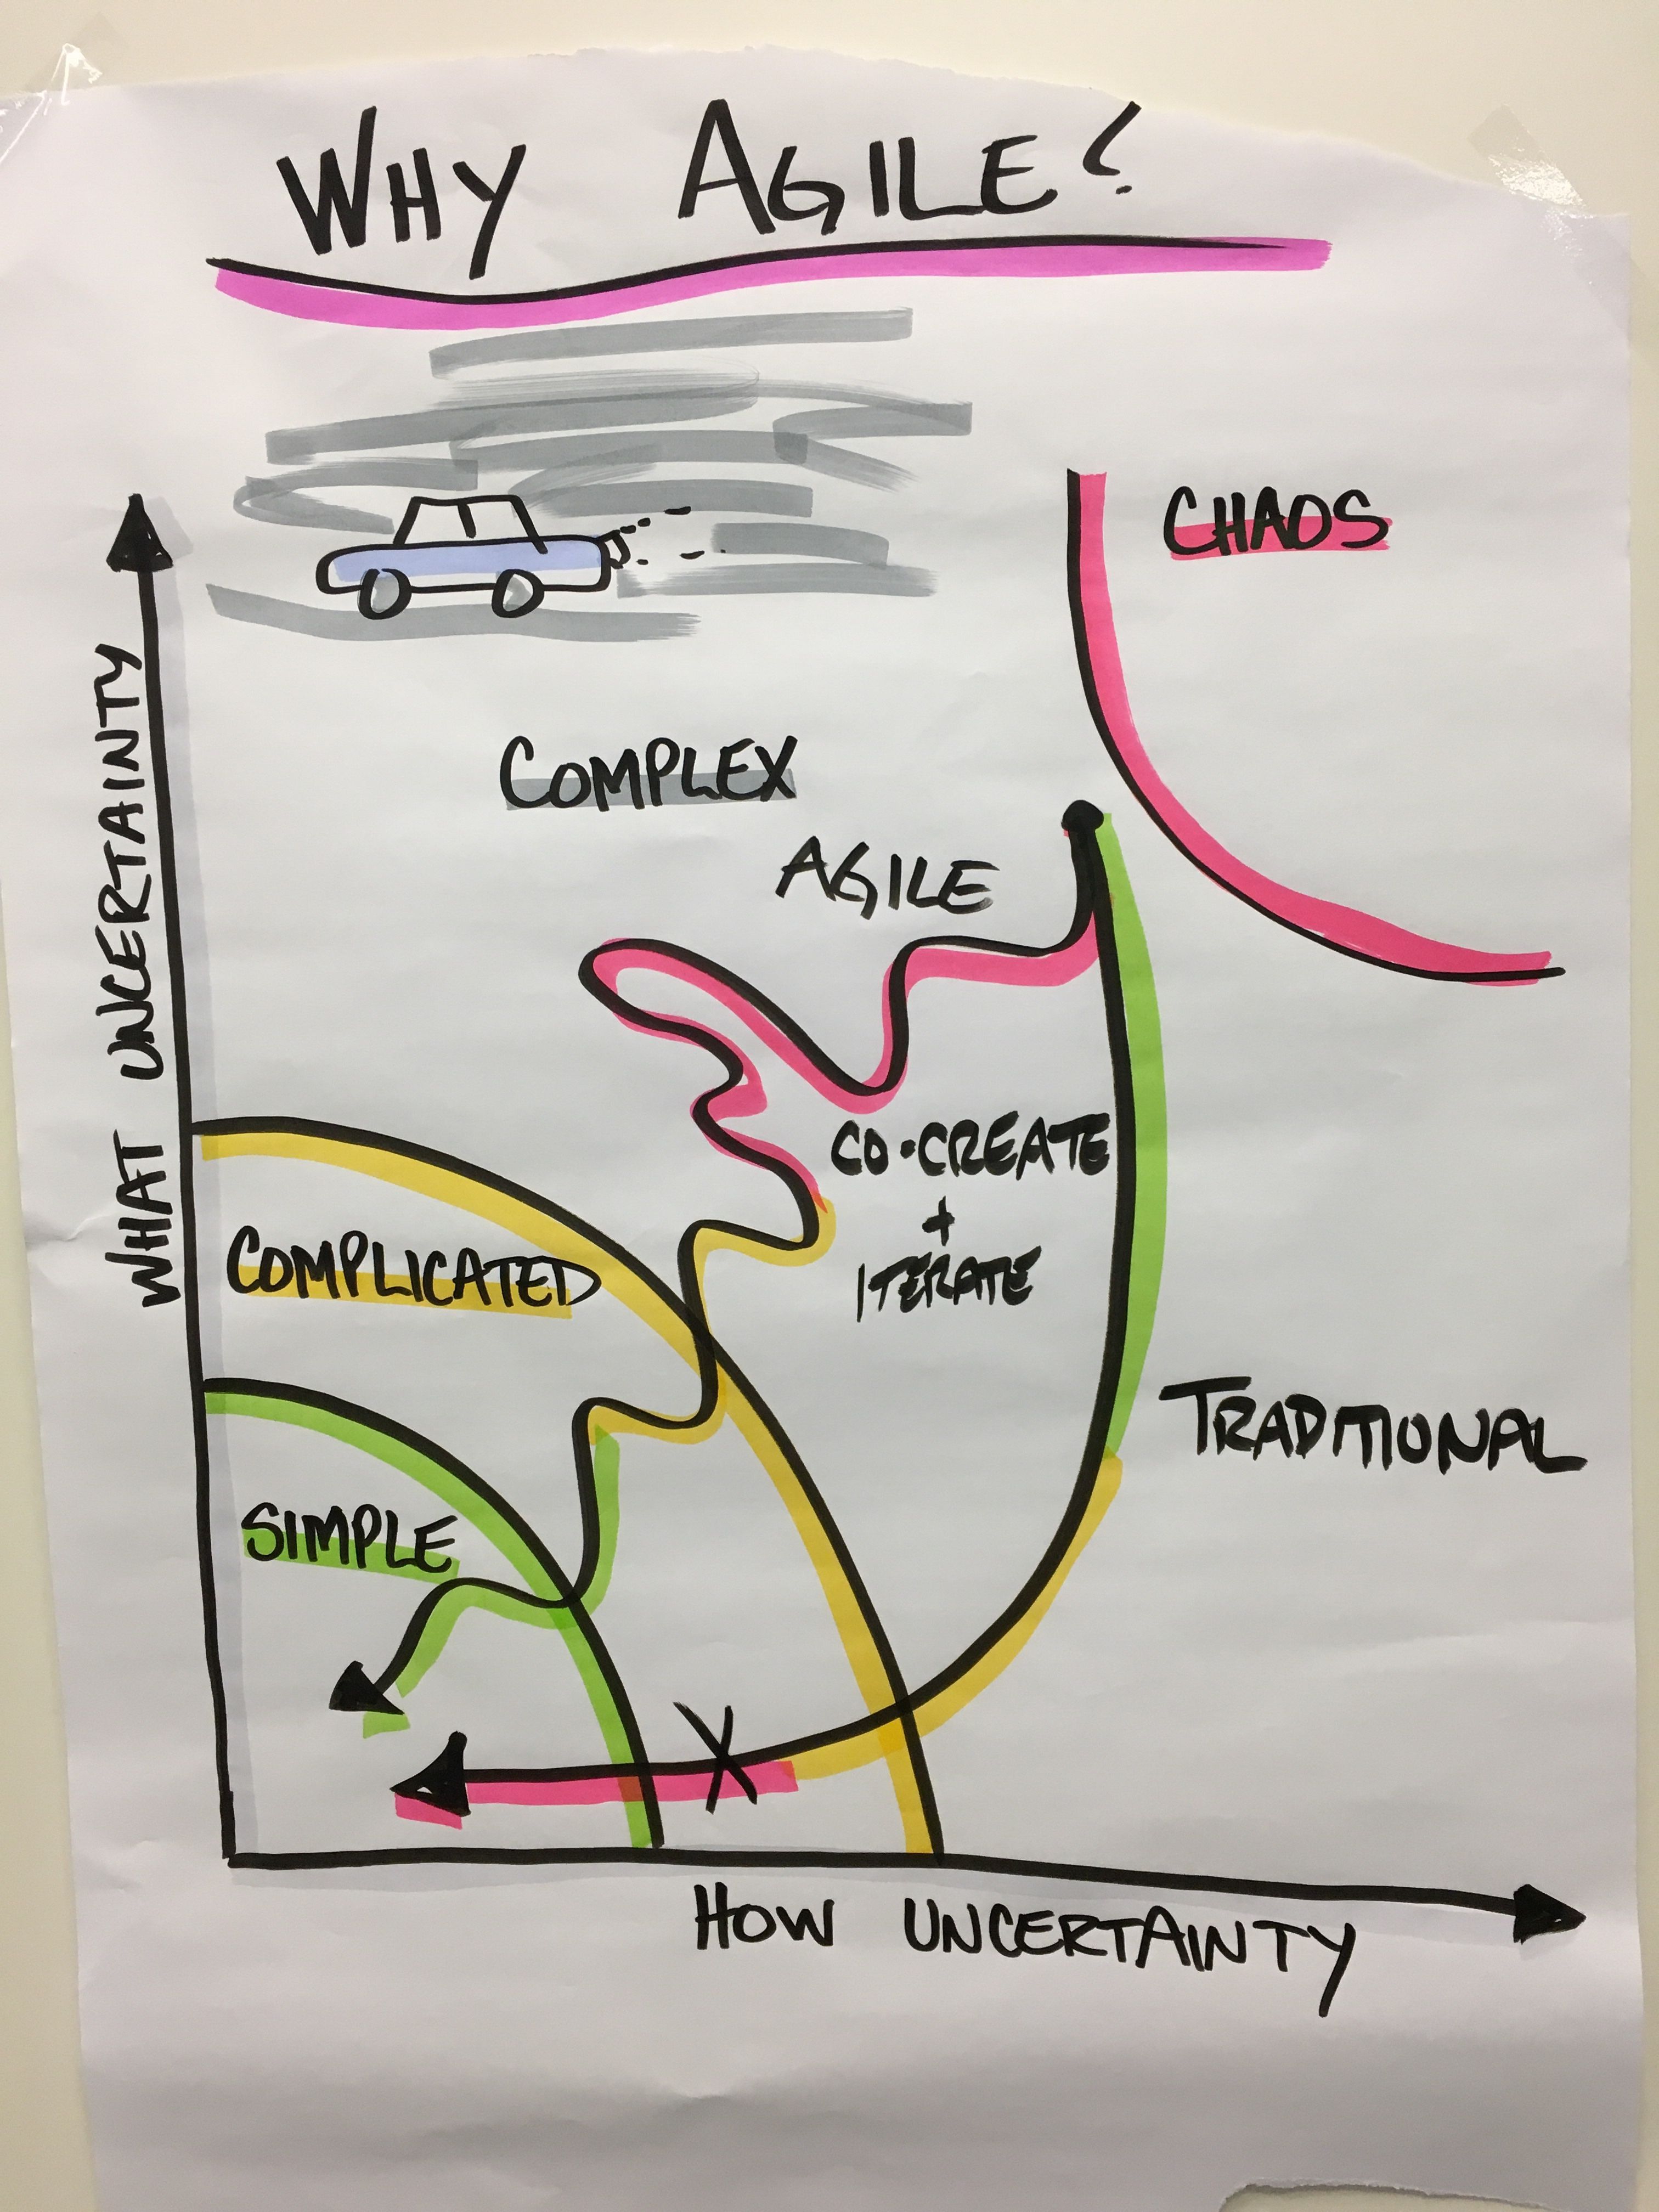 WHY AGILE?
CHAOS
WHAT UNCERTAINTY
COMPLEX
AGILE
CO-CREATE
+
ITERATE
COMPLICATED
TRADITIONAL
SIMPLE
X
HOW UNCERTAINTY